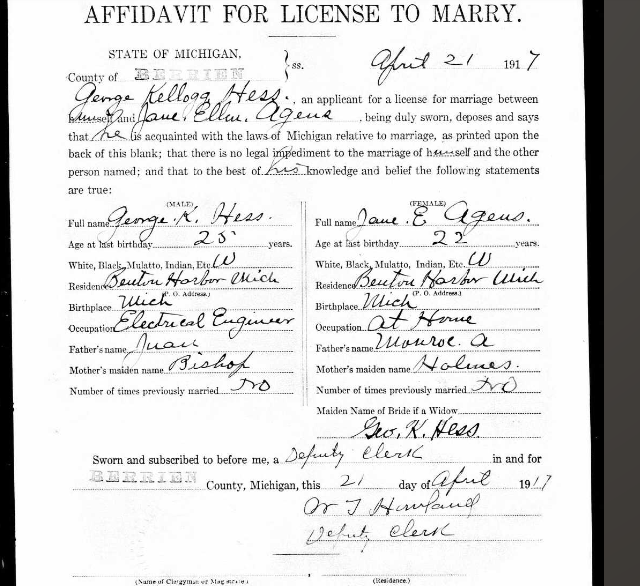 AFFIDAVIT FOR LICENSE TO MARRY.
STATE OF MICHIGAN, ss. April 21 1917
County of BERRIEN
George Kellogg Hess., an applicant for a license for marriage between
himself and Jane. Ellen. Agens, being duly sworn, deposes and says
that he is acquainted with the laws of Michigan relative to marriage, as printed upon the
back of this blank; that there is no legal impediment to the marriage of himself and the other
person named; and that to the best of his knowledge and belief the following statements
are true:
(MALE)
Full name George. K. Hess.
Age at last birthday 25 years.
White, Black, Mulatto, Indian, Etc. W
Residence Benton Harbor Mich
(P. O. Address.)
Birthplace Mich
Occupation Electrical Engineer
Father's name Juan
Mother's maiden name Bishop
Number of times previously married No
(FEMALE)
Full name Jane. E Agens.
Age at last birthday 22 years.
White, Black, Mulatto, Indian, Etc. W
Residence Benton Harbor Mich
(P. O. Address.)
Birthplace Mich
Occupation At Home
Father's name Monroe. A
Mother's maiden name Holmes.
Number of times previously married No
Maiden Name of Bride if a Widow
Geo. K. Hess.
Sworn and subscribed to before me, a Deputy Clerk in and for
BERRIEN County, Michigan, this 21 day of April 1917
W T Howland
Deputy Clerk
(Name of Clergyman or Magistrate) (Residence.)